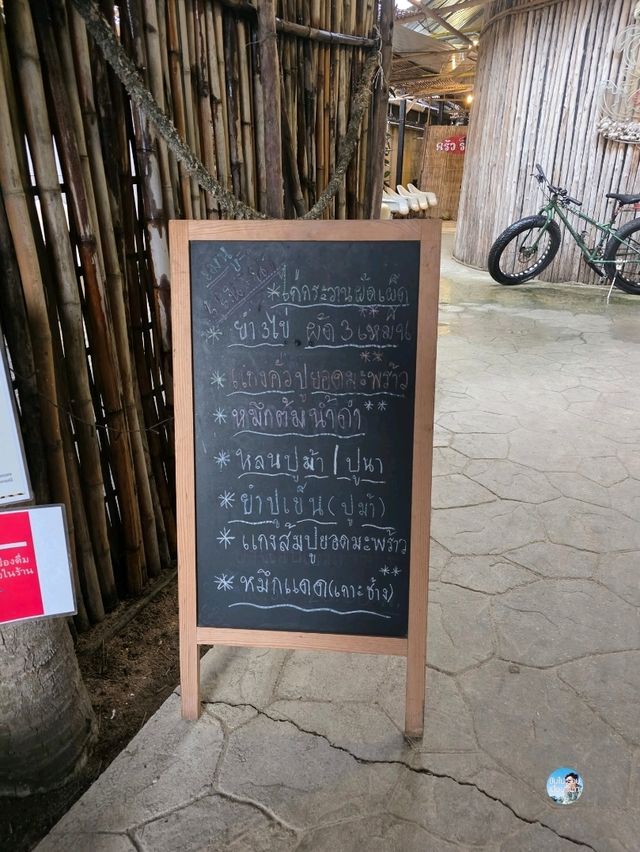 เมนู
*ไก่กระวานผัดเผ็ด
* ยำ3ไข่ ผัด3เหม็น
* แกงคั่วปูยอดมะพร้าว **
* หมึกต้มน้ำดำ **
* หลนปูม้า / ปูนา
* ยำปูเย็น (ปูม้า)
* แกงส้มปูยอดมะพร้าว
* หมึกแดด(เกาะช้าง) **
ครัว